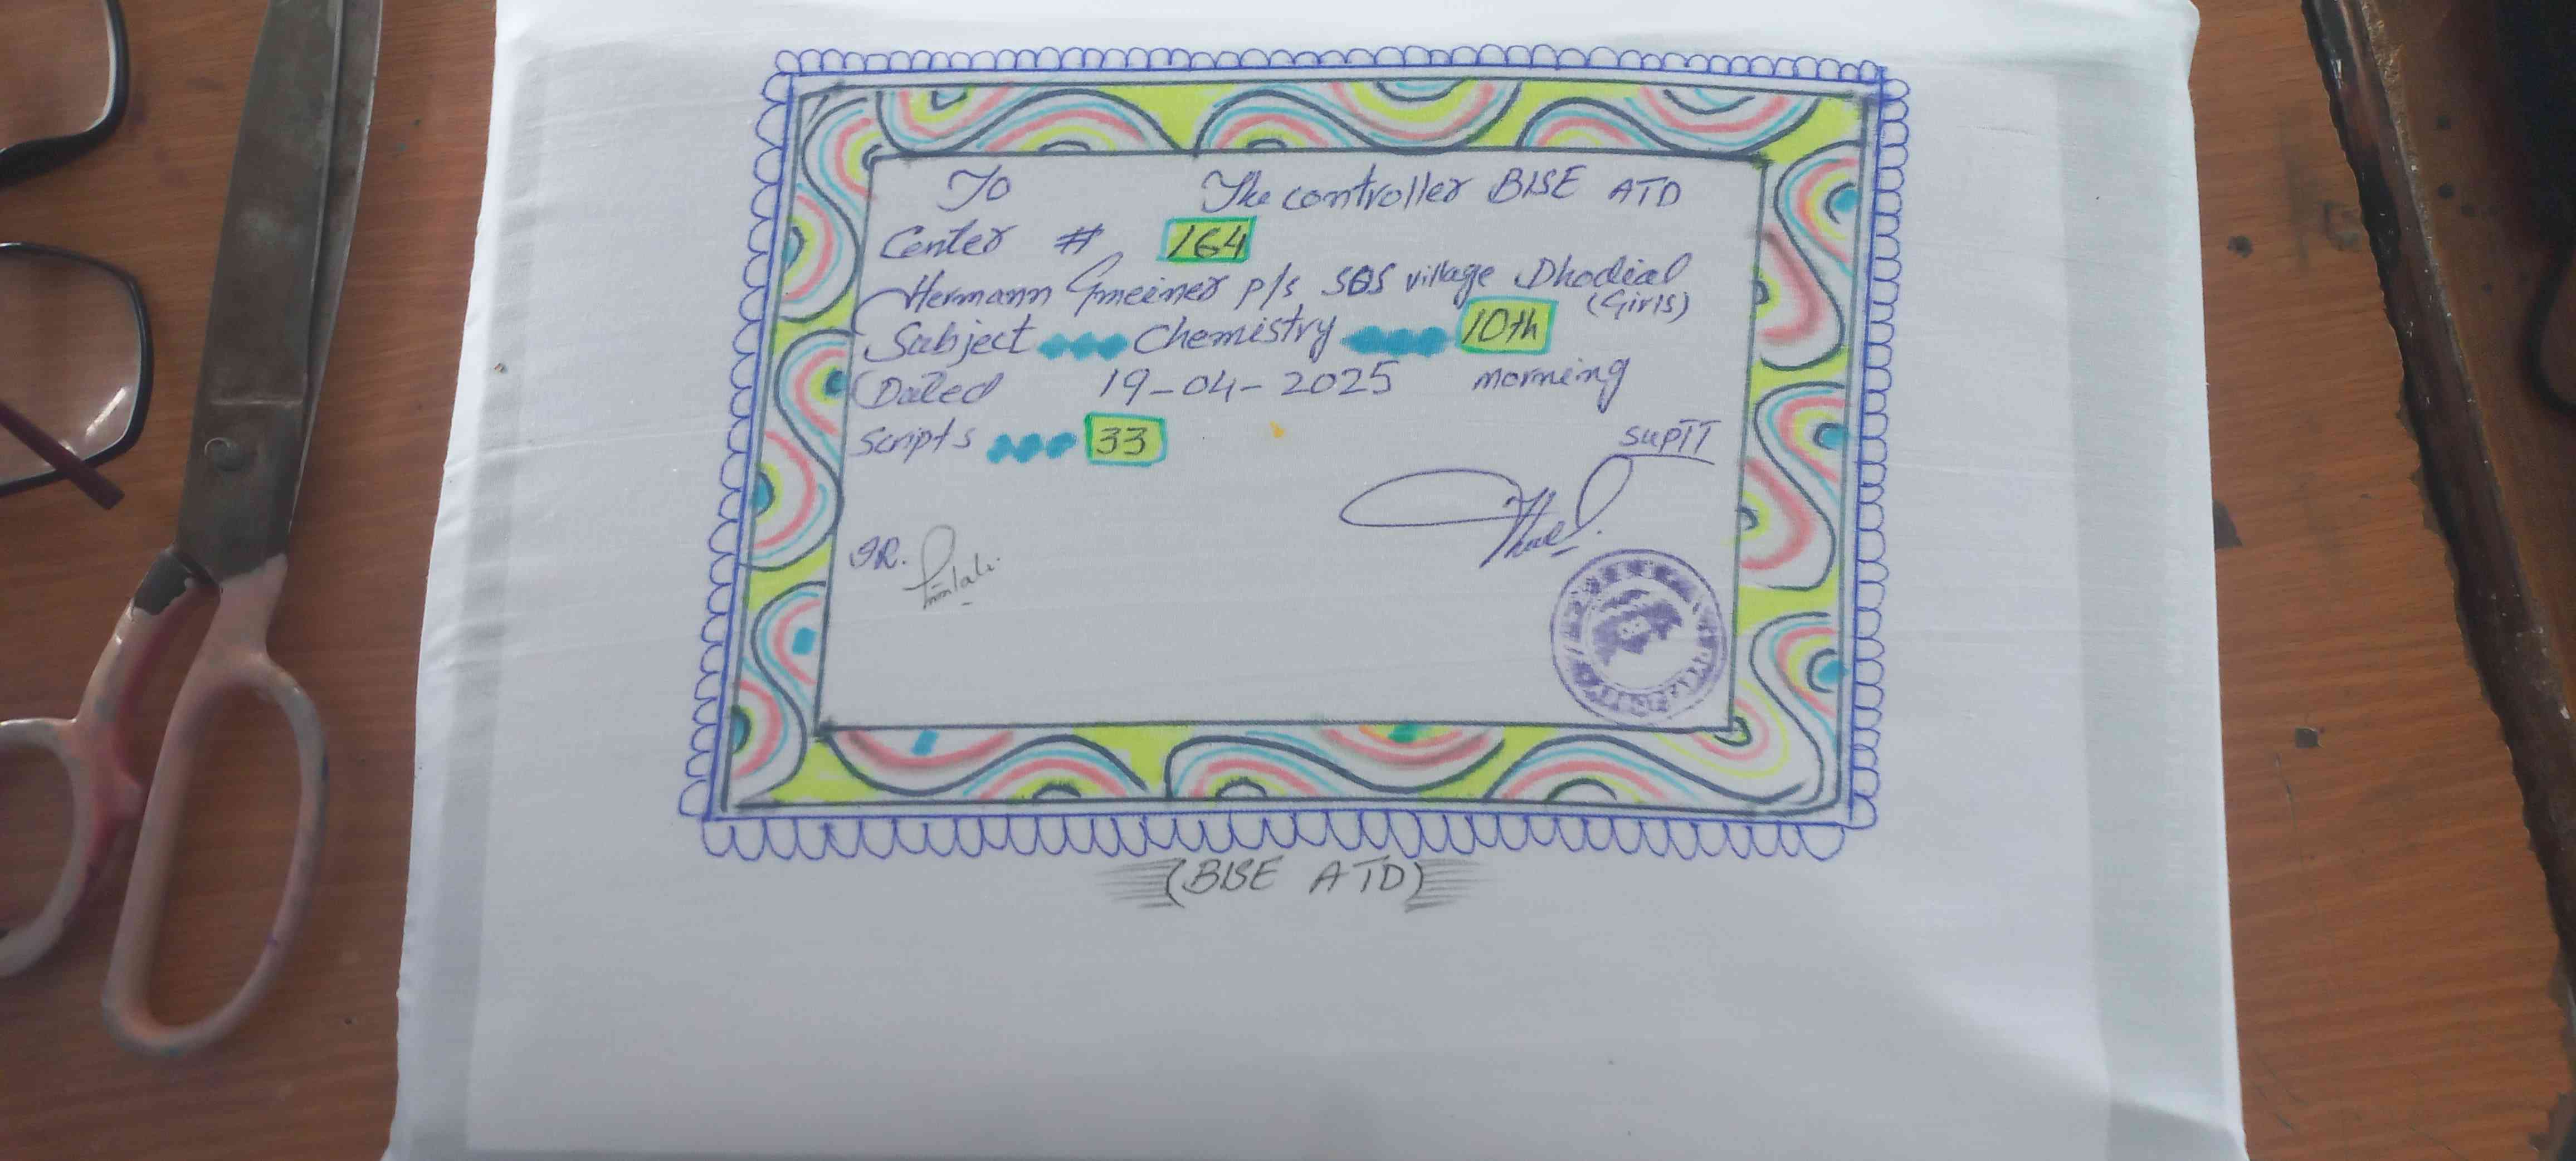 To The controller BISE ATD
Center # 164
Hermann Gmeiner P/S SOS village Dhodial
(Girls)
Subject Chemistry 10th
Dated 19-04-2025 morning
Scripts 33
SUPTT
(BISE ATD)